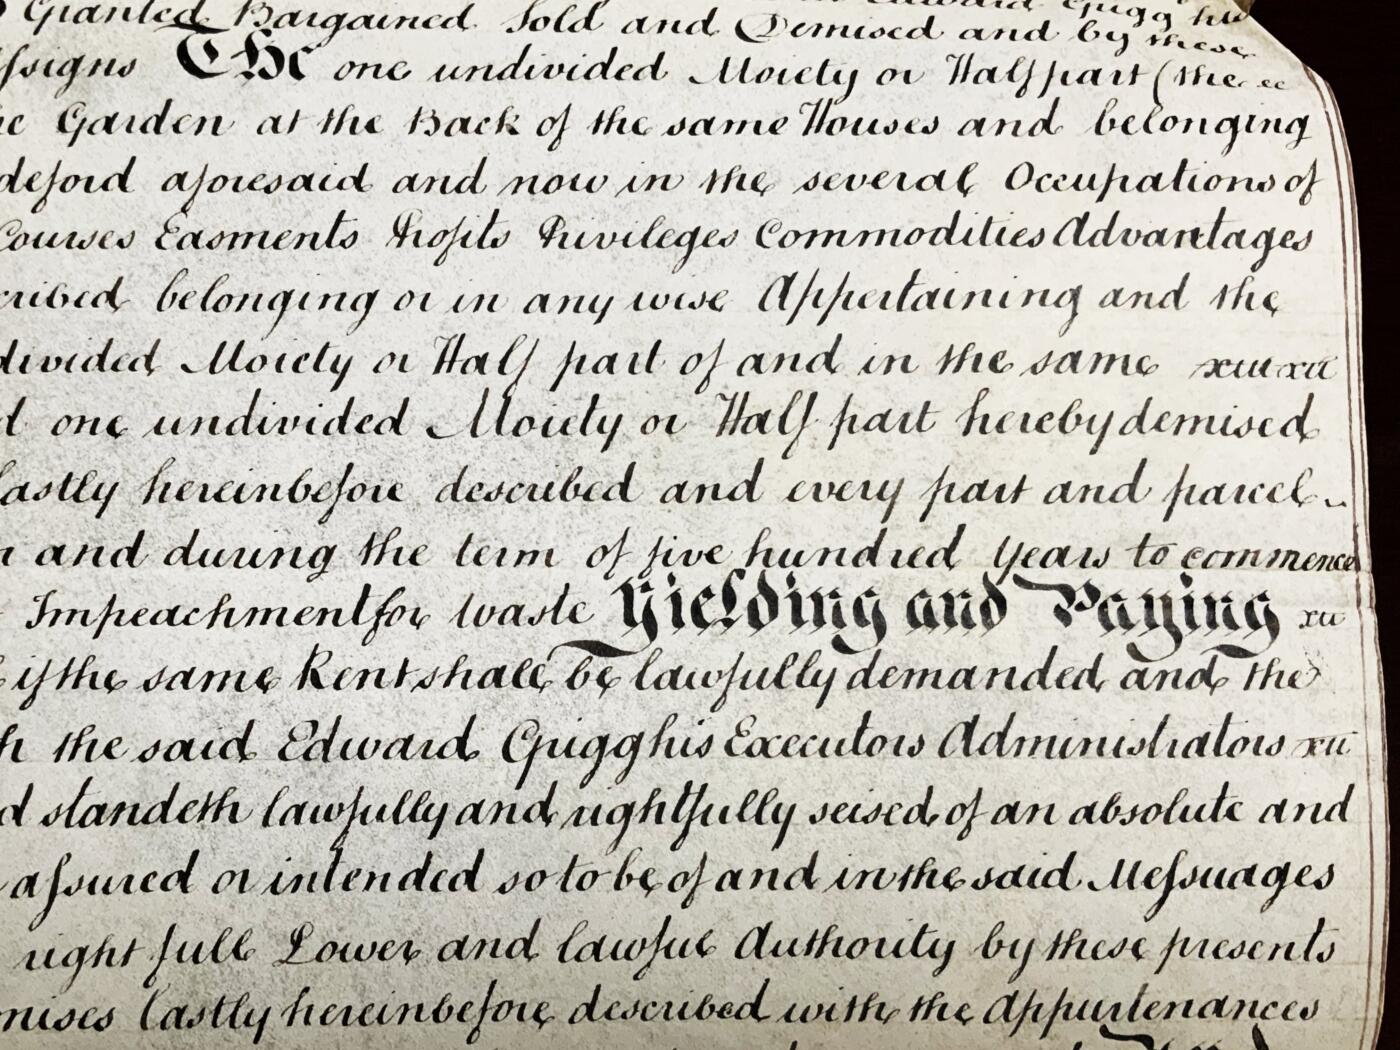 Granted Bargained Sold and Demised and by these
Assigns The one undivided Moiety or Half part (the
Garden at the Back of the same Houses and belonging
deford aforesaid and now in the several Occupations of
Courses Easments Profits Privileges Commodities Advantages
cribed belonging or in any wise Appertaining and the
divided Moiety or Half part of and in the same
d one undivided Moiety or Half part hereby demised
lastly hereinbefore described and every part and parcel
n and during the term of five hundred years to commence
Impeachment for waste Yielding and Paying
if the same Rent shall be lawfully demanded and the
h the said Edward Grigg his Executors Administrators
d standeth lawfully and rightfully seised of an absolute and
aſsured or intended so to be of and in the said Meſsuages
right full Power and lawful Authority by these presents
mises lastly hereinbefore described with the Appurtenances